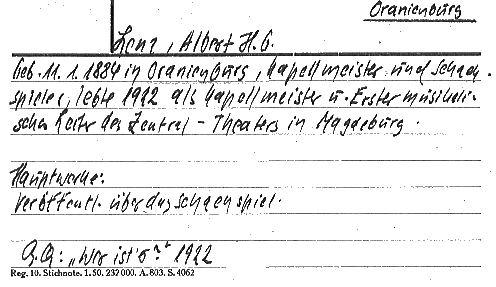 Oranienburg
Lenz, Albert H. G.
Geb. 11. 1. 1884 in Oranienburg, Kapellmeister und Schach-
spieler, lebte 1922 als Kapellmeister u. Erster musikali-
scher Leiter des Zentral-Theaters in Magdeburg.
Hauptwerke:
Veröffentl. über das Schachspiel.
Q.Q.: „Wer ist's?" 1922
Reg. 10. Stichnote. 1. 50. 232 000. A. 803. S. 4062